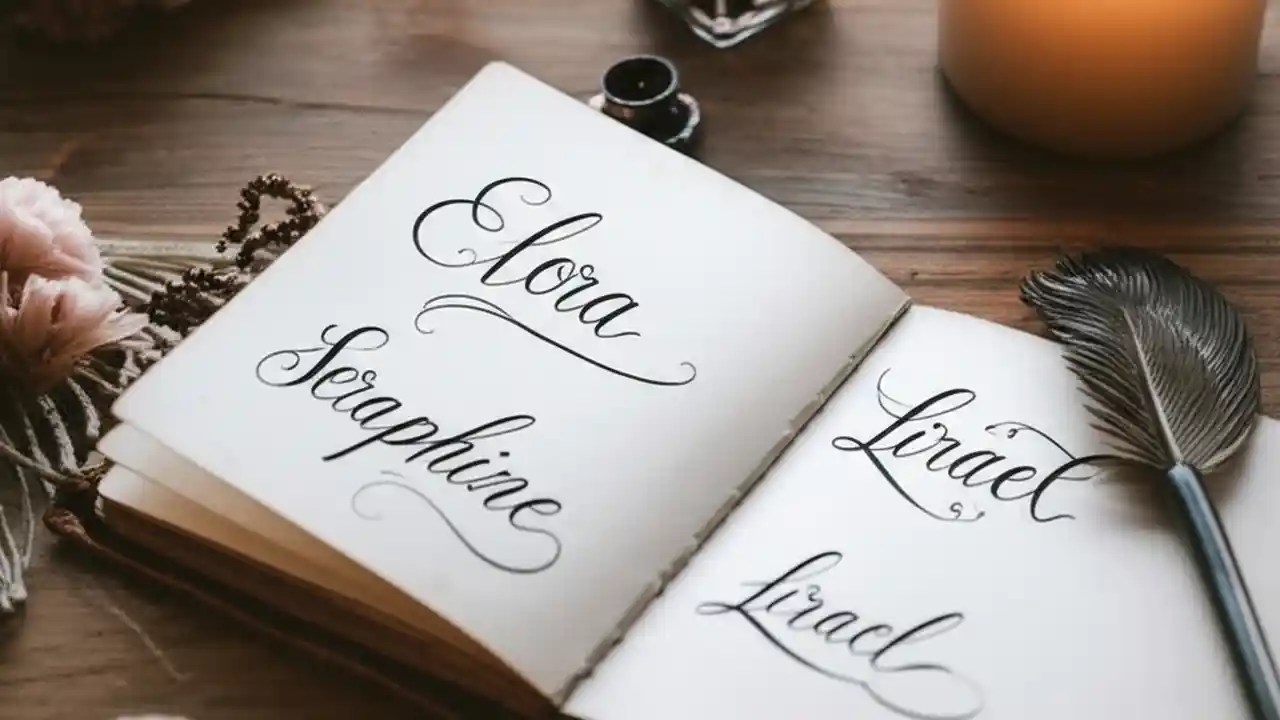 Elora
Seraphine
Lirael
Lirael